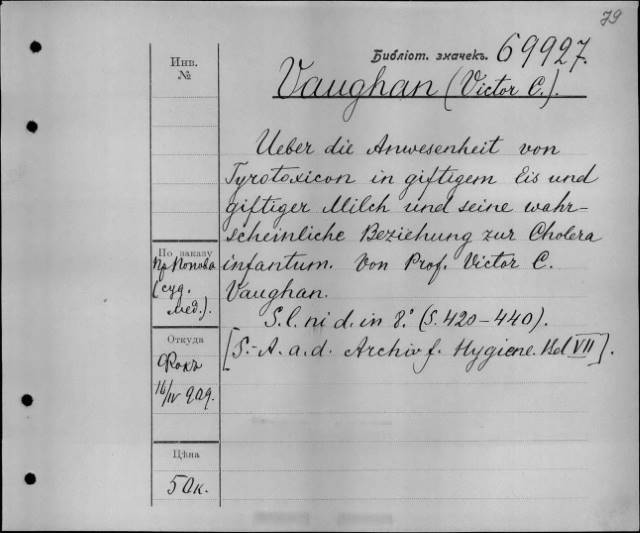 79
Библіот. значекъ. 69927.
Инв.
№
Vaughan (Victor C.).
Ueber die Anwesenheit von
Tyrotoxicon in giftigem Eis und
giftiger Milch und seine wahr-
scheinliche Beziehung zur Cholera
infantum. Von Prof. Victor C.
Vaughan.
S. l. ni d. in 8.° (S. 420–440).
[S.-A. a. d. Archiv f. Hygiene. Bd VII].
По заказу
Пр Попова
(суд.
мед.).
Откуда
Фокъ
16/IV 909.
Цѣна
50к.